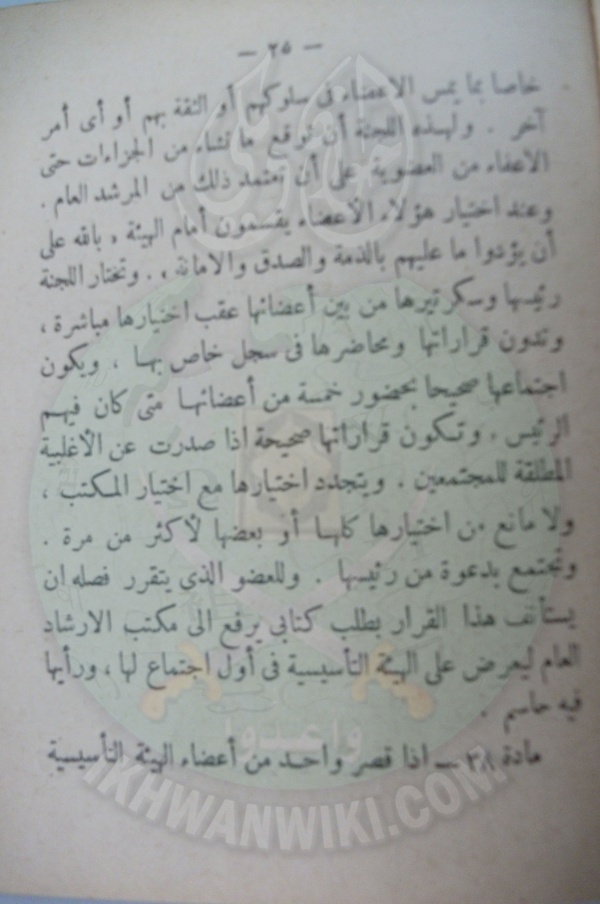 — ٢٥ —
خاصا بما يمس الاعضاء فى سلوكهم أو الثقة بهم أو أى أمر
آخر . ولهذه اللجنة أن توقع ما تشاء من الجزاءات حتى
الاعفاء من العضوية على أن يعتمد ذلك من المرشد العام .
وعند اختيار هؤلاء الأعضاء يقسمون أمام الهيئة « بالله على
أن يؤدوا ما عليهم بالذمة والصدق والامانة » . وتختار اللجنة
رئيسها وسكرتيرها من بين أعضائها عقب اختيارها مباشرة ،
وتدون قراراتها ومحاضرها فى سجل خاص بها ، ويكون
اجتماعها صحيحا بحضور خمسة من أعضائها متى كان فيهم
الرئيس . وتكون قراراتها صحيحة اذا صدرت عن الأغلبية
المطلقة للمجتمعين . ويتجدد اختيارها مع اختيار المكتب ،
ولا مانع من اختيارها كلها أو بعضها لأكثر من مرة .
وتجتمع بدعوة من رئيسها . وللعضو الذى يتقرر فصله ان
يستأنف هذا القرار بطلب كتابى يرفع الى مكتب الارشاد
العام ليعرض على الهيئة التأسيسية فى أول اجتماع لها ، ورأيها
فيه حاسم .
مادة ٣٨ — اذا قصر واحد من أعضاء الهيئة التأسيسية
واعدوا
IKHWANWIKI.COM